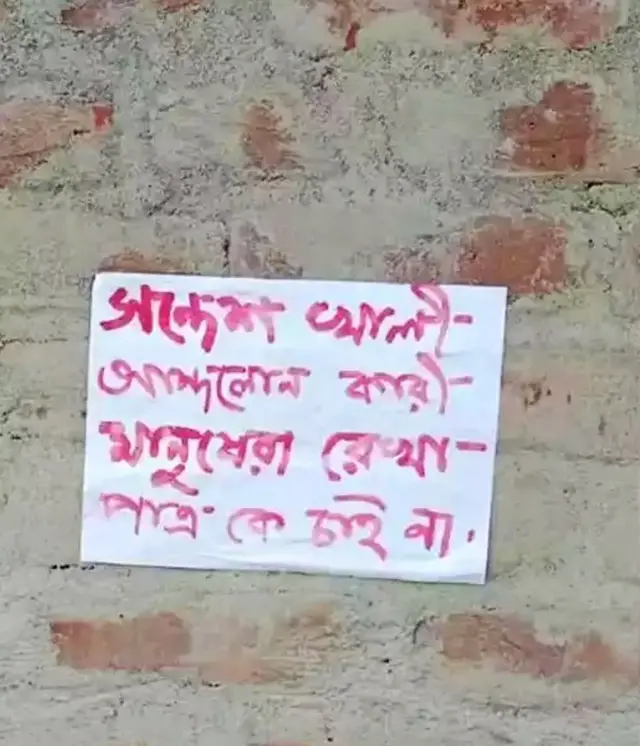 সন্দেশ খালী-
আন্দলোন কারী-
মানুষেরা রেখা-
পাত্র কে চাই না.